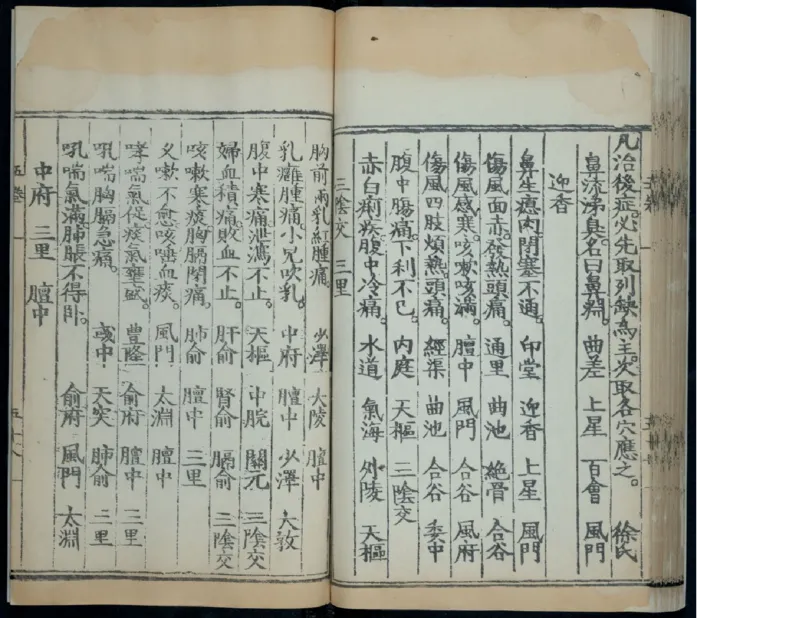 凡治後症。必先取列缺為主。次取各穴應之。徐氏
鼻流涕臭。名曰鼻淵。曲差 上星 百會 風門
迎香
鼻生瘜肉閉塞不通。印堂 迎香 上星 風門
傷風面赤。發熱頭痛。通里 曲池 絕骨 合谷
傷風感寒。咳嗽咳滿。膻中 風門 合谷 風府
傷風四肢煩熱。頭痛。經渠 曲池 合谷 委中
腹中腸痛。下利不已。內庭 天樞 三陰交
赤白痢疾。腹中冷痛。水道 氣海 外陵 天樞
三陰交 三里
胸前兩乳紅腫痛。少澤 大陵 膻中
乳癰腫痛。小兒吹乳。中府 膻中 少澤 大敦
腹中寒痛。泄瀉不止。天樞 中脘 關元 三陰交
婦血積痛。敗血不止。肝俞 腎俞 膈俞 三陰交
咳嗽寒痰。胸膈閉痛。肺俞 膻中 三里
久嗽不愈。咳唾血痰。風門 太淵 膻中
哮喘氣促。痰氣壅盛。豐隆 俞府 膻中 三里
吼喘胸膈急痛。彧中 天突 肺俞 三里
吼喘氣滿。肺脹不得臥。俞府 風門 太淵
中府 三里 膻中